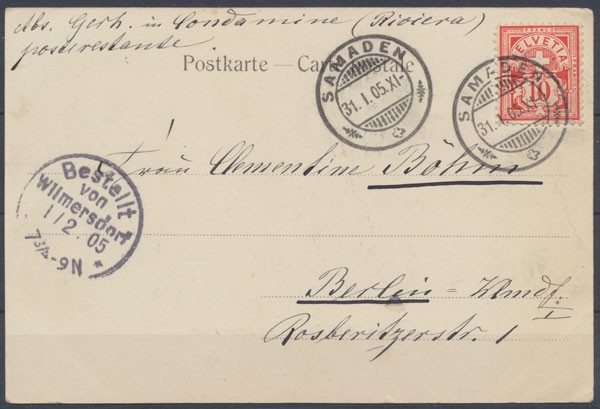 Abs. Gerh. in Condamine (Riviera)
posterestante.
Postkarte — Carte postale
SAMADEN
31.I.05.XI-
FRANCO
HELVETIA
10
SAMADEN
31.I.05.XI-
Frau Clementine Böhm
Bestellt
von
Wilmersdorf
1/2.05
7¾-9N
Berlin - Wmdf.
I
Rosberitzerstr. 1